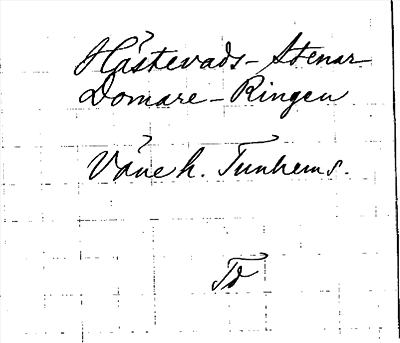 Hästevads-Stenar
Domare-Ringen
Väne h. Tunhems s.
To